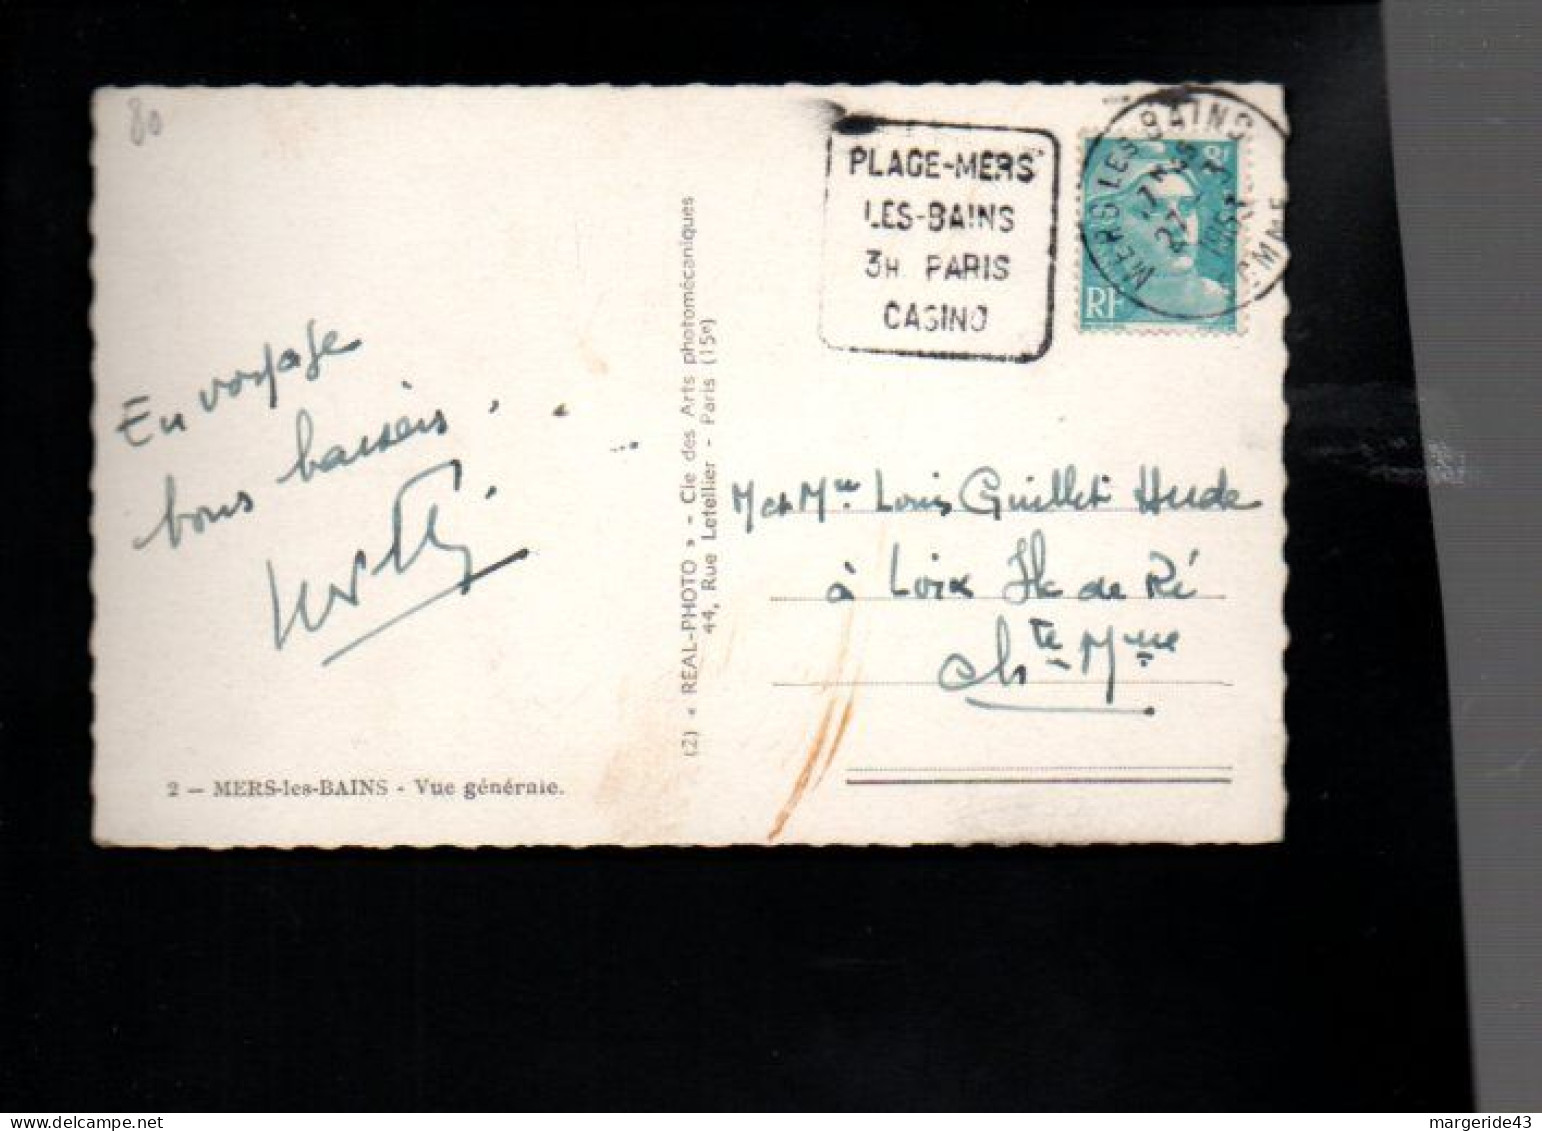 80
PLAGE-MERS
LES-BAINS
3H PARIS
CASINO
MERS LES BAINS
SOMME
8F
RF
En voyage
bons baisers.
M et Mme Louis Guillet Hude
à Loix Ile de Ré
Chte-Mme
(2) « REAL-PHOTO » - Cie des Arts photomécaniques
44, Rue Letellier - Paris (15e)
2 — MERS-les-BAINS - Vue générale.
margeride43